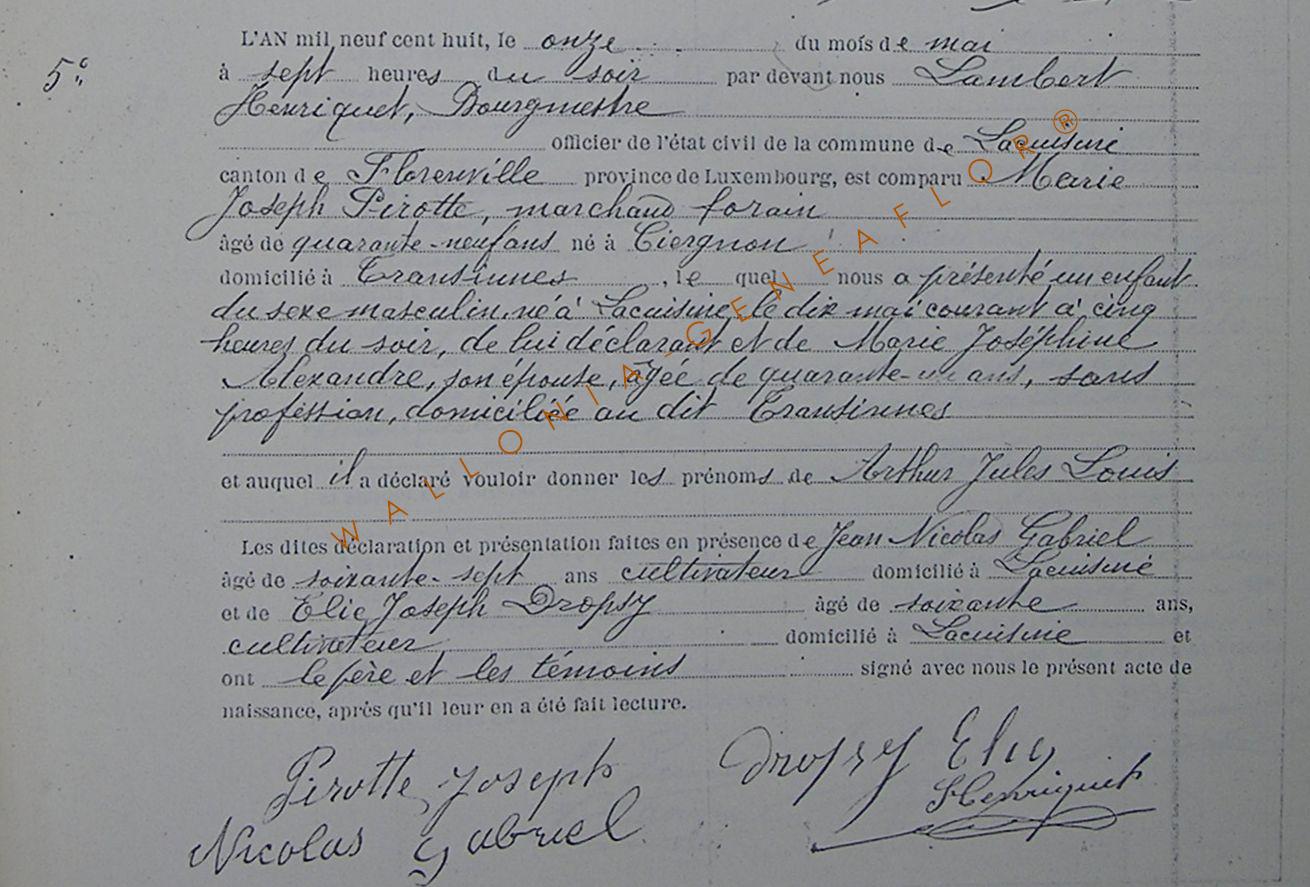 L'AN mil neuf cent huit, le onze du mois de mai
5e
à sept heures du soir par devant nous Lambert
Henriquet, Bourgmestre
officier de l'état civil de la commune de Lacuisine
canton de Florenville province de Luxembourg, est comparu Marie
Joseph Pirotte, marchand forain
âgé de quarante-neuf ans né à Ciergnon
domicilié à Transinnes, le quel nous a présenté un enfant
du sexe masculin, né à Lacuisine, le dix mai courant à cinq
heures du soir, de lui déclarant et de Marie Joséphine
Alexandre, son épouse, âgée de quarante-un ans, sans
proféssion, domiciliée au dit Transinnes
et auquel il a déclaré vouloir donner les prénoms de Arthur Jules Louis
Les dites déclaration et présentation faites en présence de Jean Nicolas Gabriel
âgé de soixante-sept ans cultivateur domicilié à Lacuisine
et de Elie Joseph Dropsy âgé de soixante ans,
cultivateur domicilié à Lacuisine et
ont le père et les témoins signé avec nous le présent acte de
naissance, après qu'il leur en a été fait lecture.
Pirotte Joseph
Dropsy Elie
LHenriquet
Nicolas Gabriel
WALLONIA-GENEAFLOR®